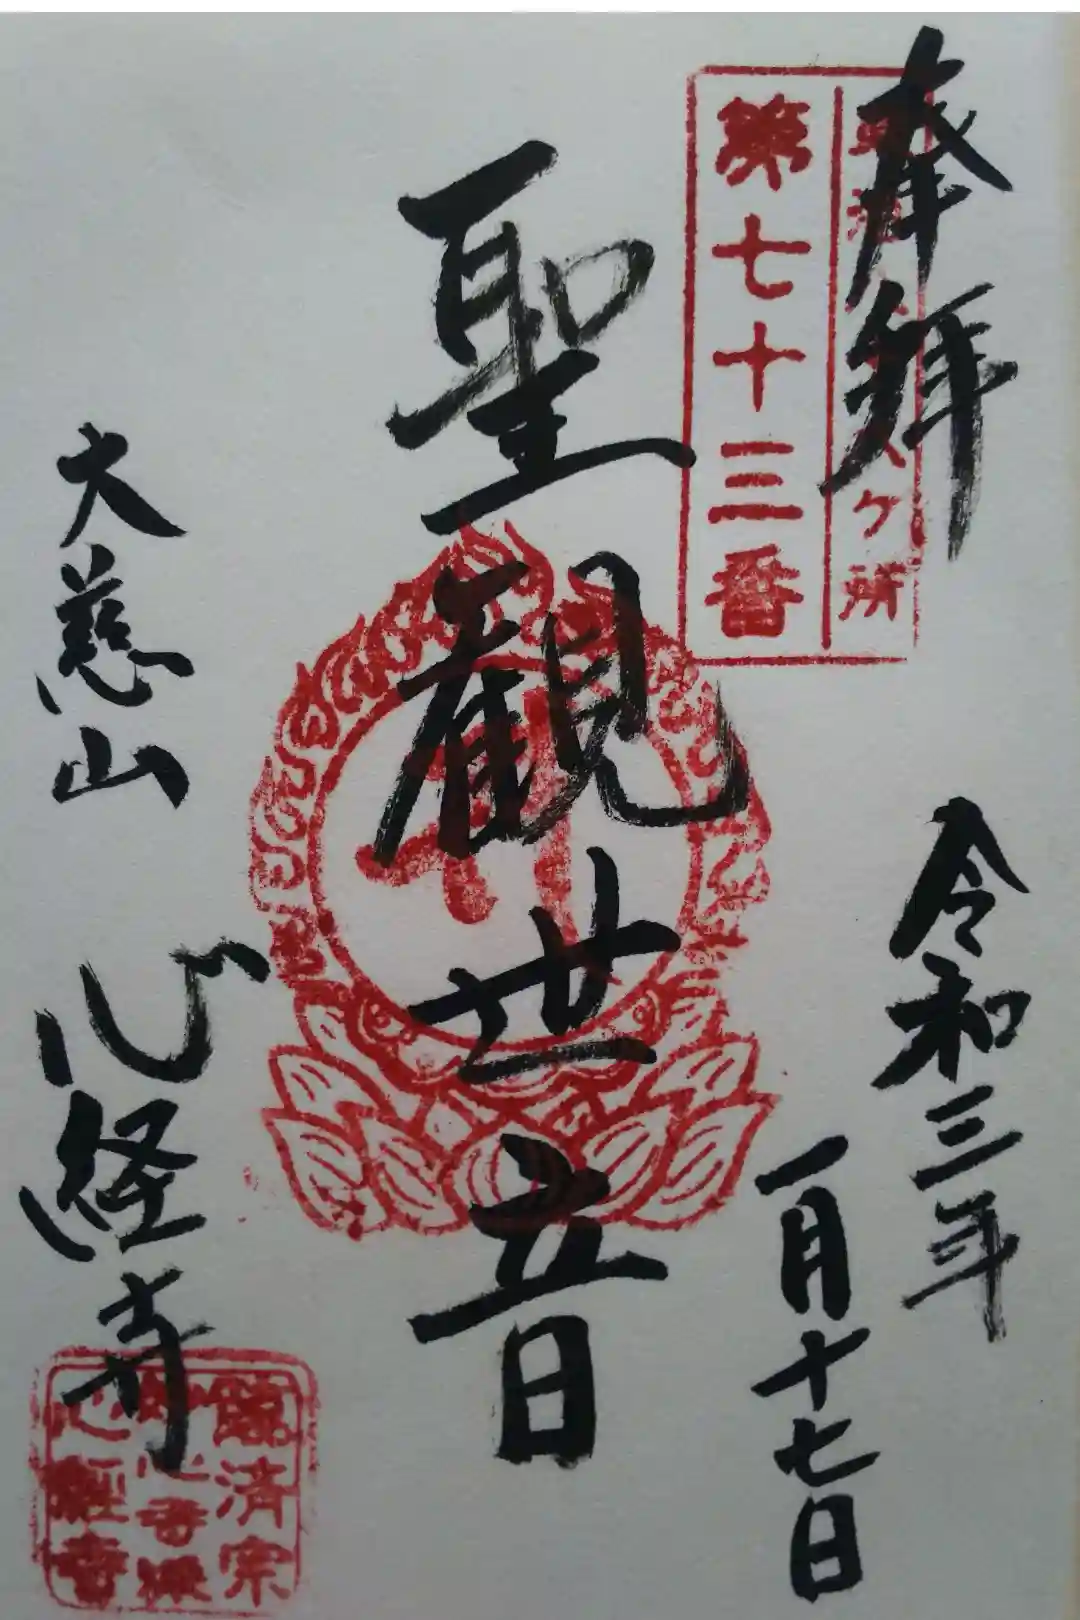 奉拝
ヶ所
第七十三番
令和三年
一月十七日
聖観世音
大慈山
心経寺
臨済宗
妙心寺派
心経寺